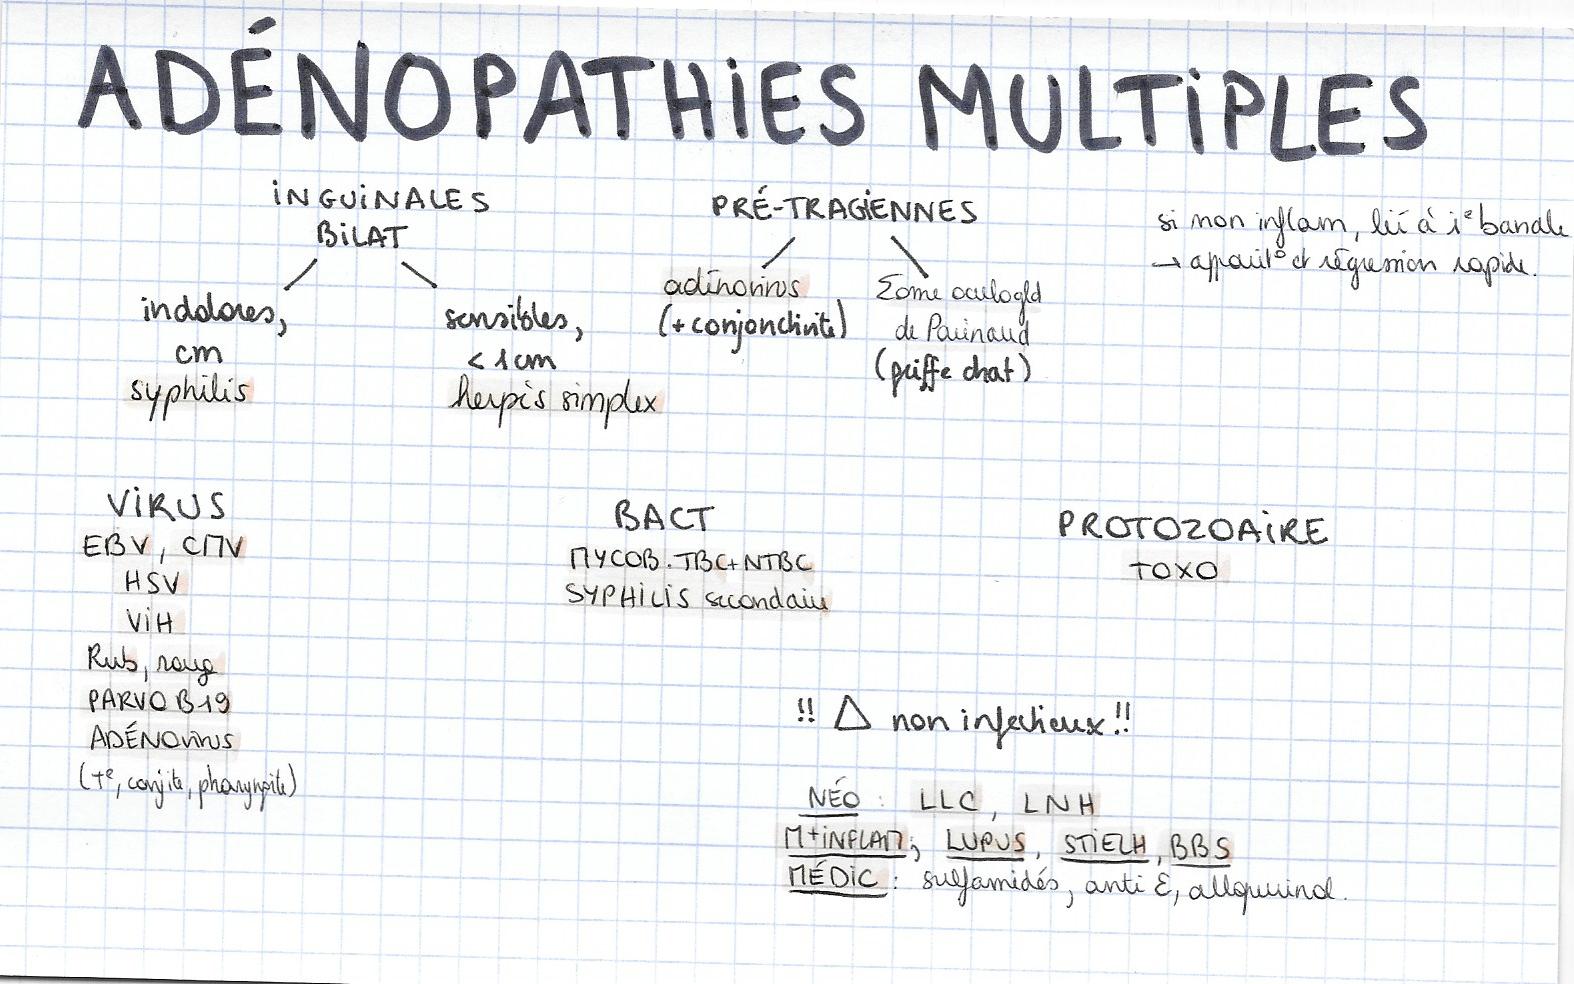 ADÉNOPATHIES MULTIPLES
INGUINALES
BILAT
indolores,
cm
syphilis
sensibles,
< 1cm
herpès simplex
PRÉ-TRAGIENNES
adénovirus
(+ conjonctivite)
Σome oculogld
de Parinaud
(griffe chat)
si non inflam, lié à i° banale
→ apparit° et régression rapide.
VIRUS
EBV, CMV
HSV
VIH
Rub, roug
PARVO B19
ADÉNOvirus
(T°, conjite, pharyngite)
BACT
MYCOB. TBC + NTBC
SYPHILIS secondaire
PROTOZOAIRE
TOXO
!! Δ non infectieux !!
NÉO : LLC, LNH
M+INFLAM; LUPUS, STIELH, BBS
MÉDIC : sulfamidés, anti Ɛ, allopurinol.